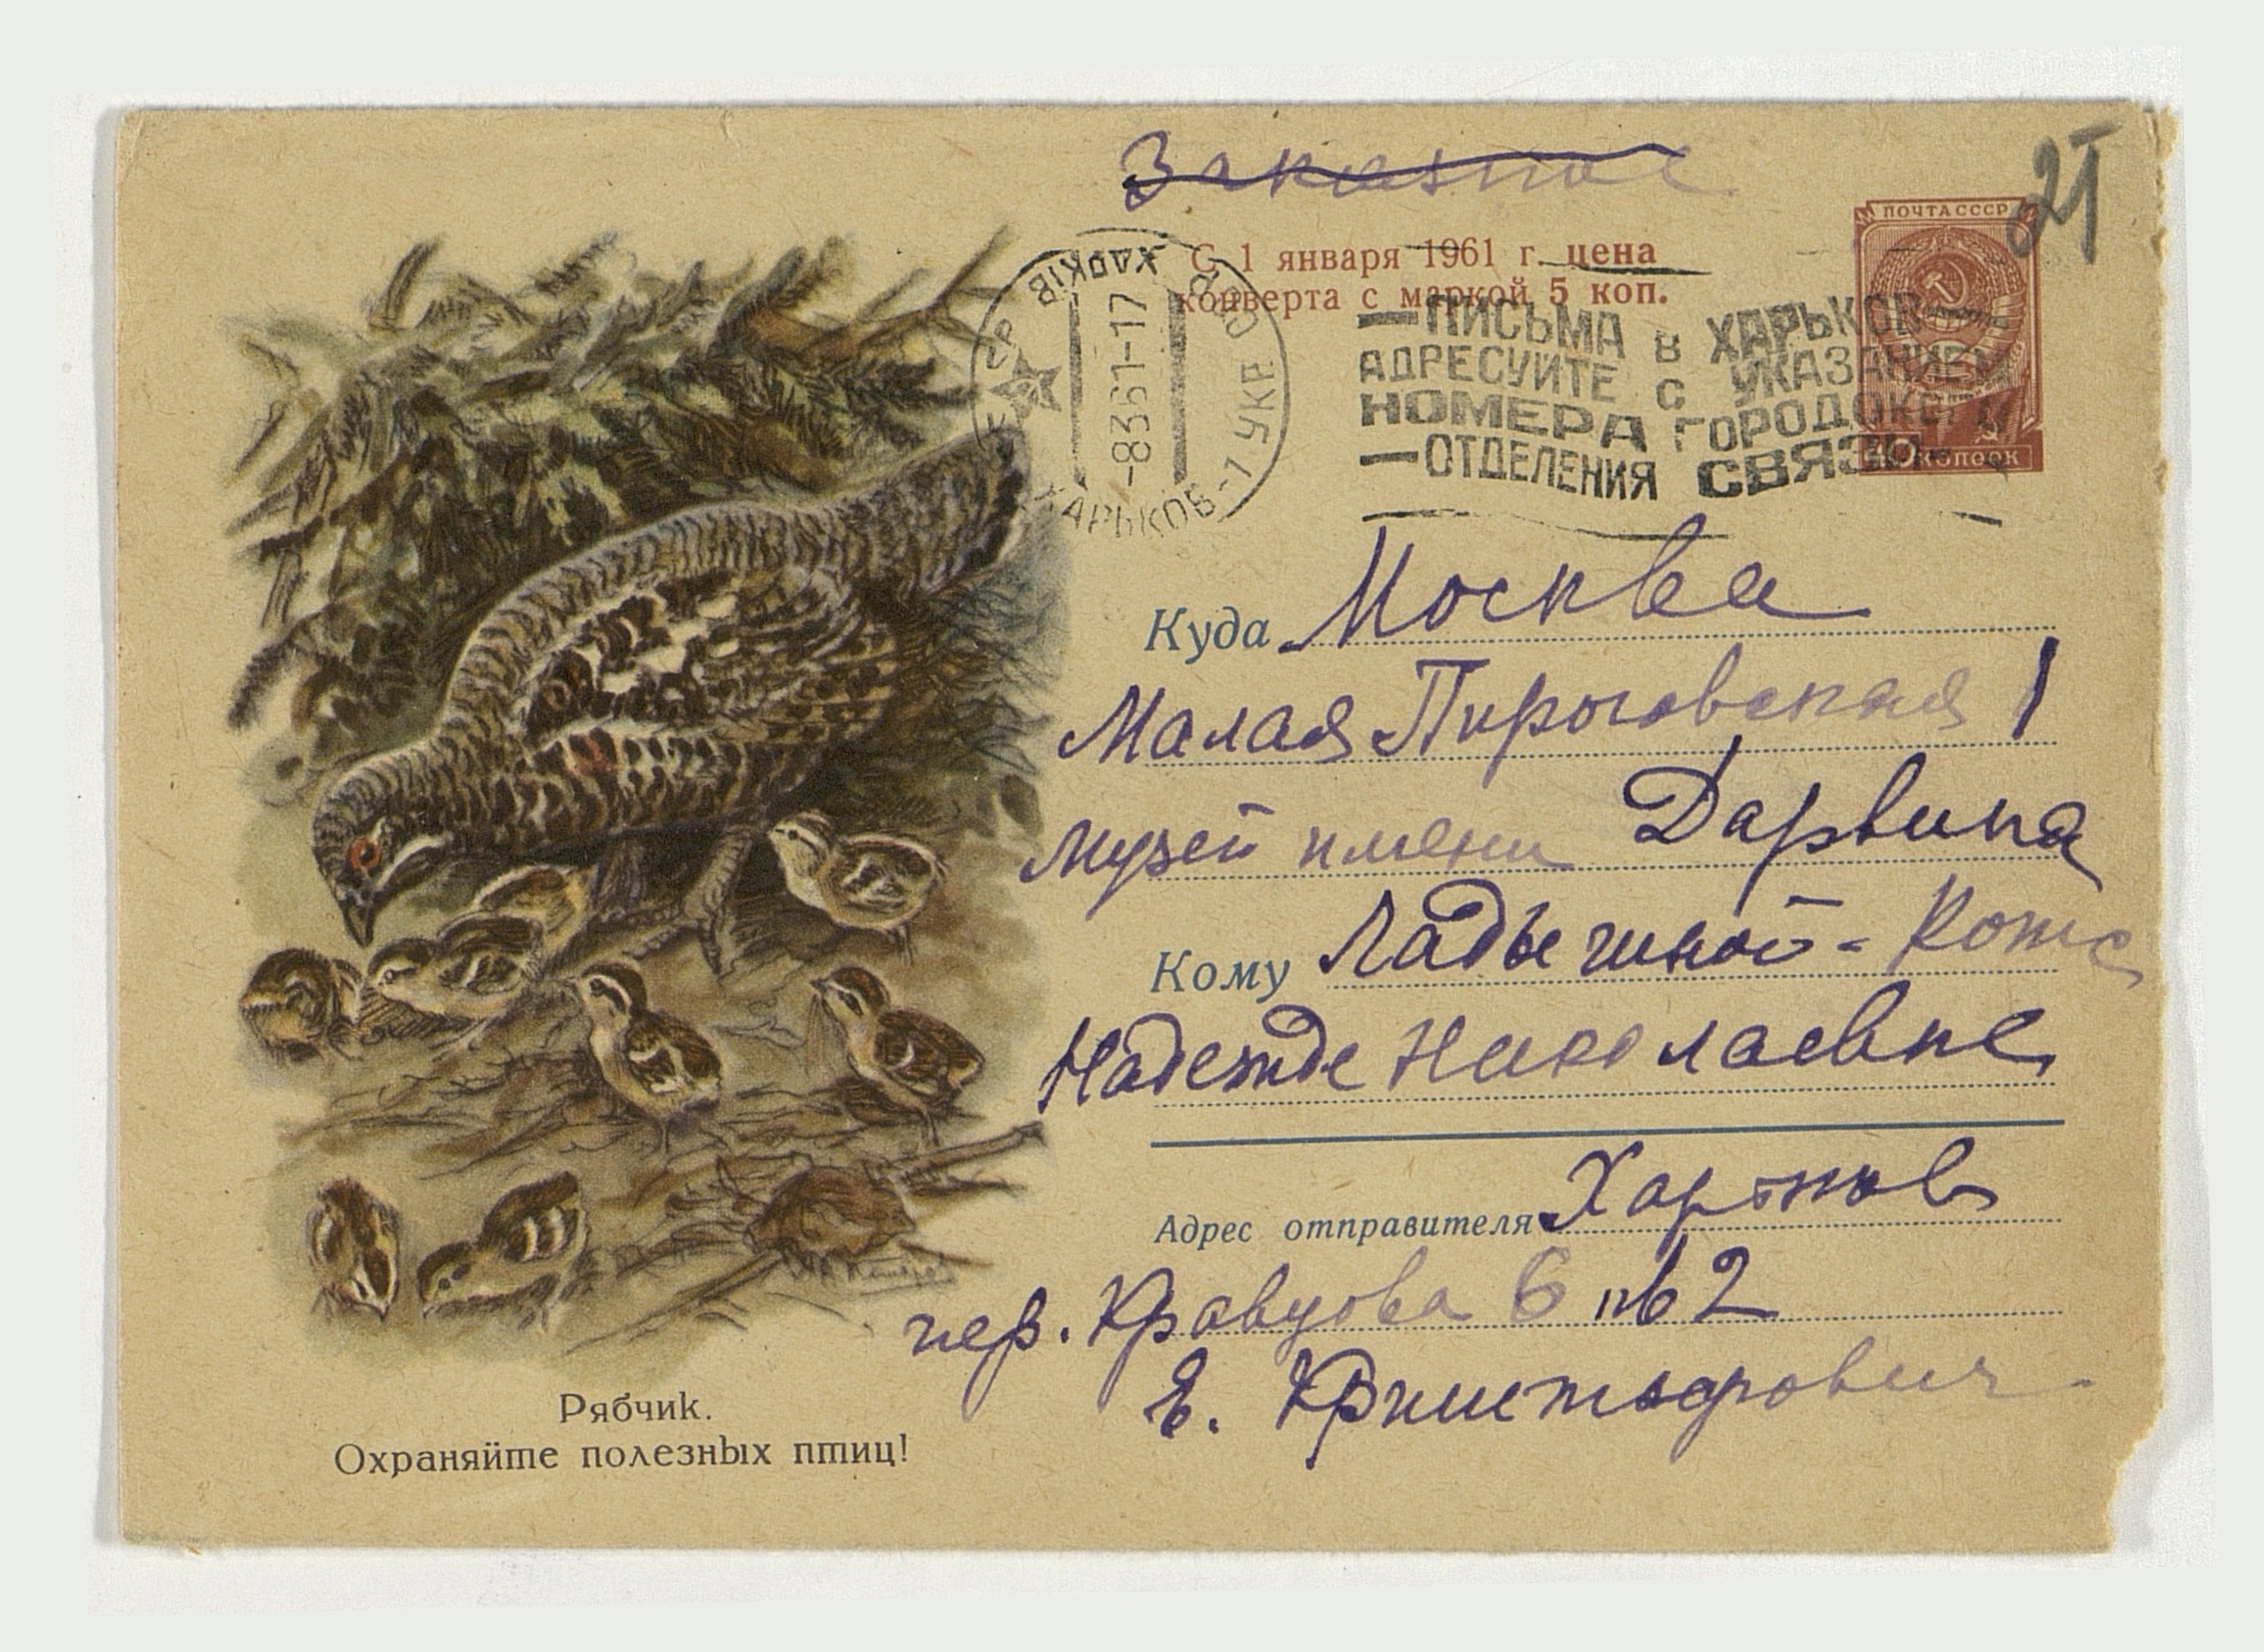 Заказное
21
ПОЧТА СССР
С 1 января 1961 г. цена
конверта с маркой 5 коп.
40 копеек
ХАРКІВ
УКР
-8361-17
ХАРЬКОВ-1
ПИСЬМА В ХАРЬКОВ
АДРЕСУЙТЕ С УКАЗАНИЕМ
НОМЕРА ГОРОДСКОГО
ОТДЕЛЕНИЯ СВЯЗИ
Куда Москва
Малая Пироговская 1
музей имени Дарвина
Кому Ладыгиной-Котс
Надежде Николаевне
Адрес отправителя Харьков
пер. Кравцова 6 кв 2
Е. Кристофович
Рябчик.
Охраняйте полезных птиц!